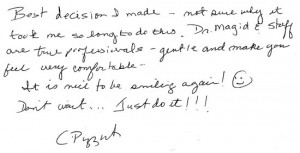 Best decision I made - not sure why it
took me so long to do this. Dr. Magid & staff
are true professionals - gentle and make you
feel very comfortable -
It is nice to be smiling again! ☺
Don't wait... Just do it!!!